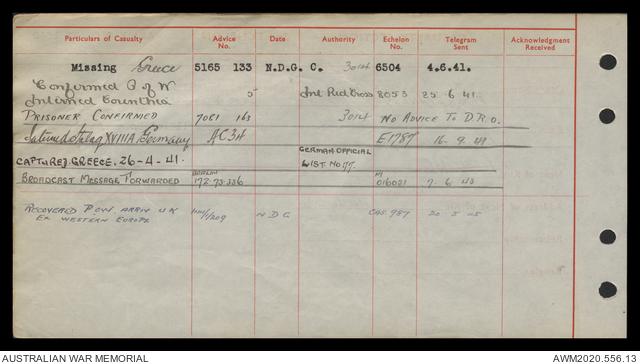 Particulars of Casualty Advice No. Date Authority Echelon No. Telegram Sent Acknowledgment Received
Missing Greece 5165 133 N.D.G. C. 3014 6504 4.6.41.
Confirmed P of W 5 Int Red Cross 8053 25 6 41
Interned Corinthia
PRISONER CONFIRMED 7081 163 3014 NO ADVICE TO D.R.O.
Interned Stalag XVIIIA, Germany AC34 E1787 16. 9. 41
GERMAN OFFICIAL
CAPTURED GREECE. 26-4-41. LIST. NO 77.
BERLIN
BROADCAST MESSAGE FORWARDED 172. 73. 336 016021 7. 6 43
RECOVERED P.O.W. ARRIV UK N D G CAS 987 20 5 45
EX WESTERN EUROPE
AUSTRALIAN WAR MEMORIAL AWM2020.556.13